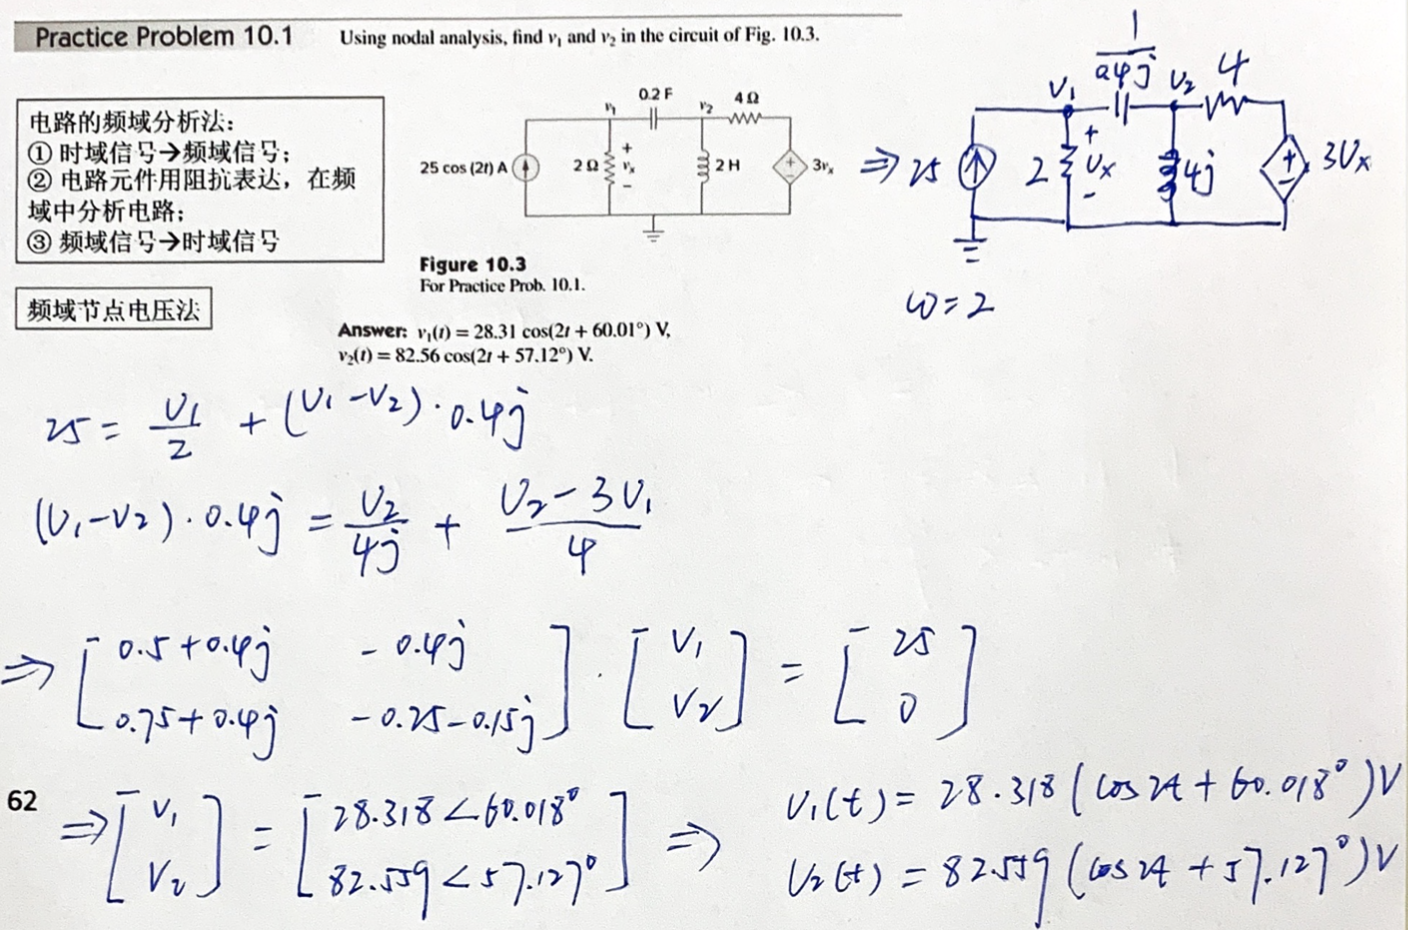 Practice Problem 10.1 Using nodal analysis, find v₁ and v₂ in the circuit of Fig. 10.3.
电路的频域分析法：
① 时域信号→频域信号；
② 电路元件用阻抗表达，在频
域中分析电路；
③ 频域信号→时域信号
频域节点电压法
v₁ 0.2 F v₂ 4 Ω
25 cos (2t) A 2 Ω + vₓ − 2 H + − 3vₓ
Figure 10.3
For Practice Prob. 10.1.
Answer: v₁(t) = 28.31 cos(2t + 60.01°) V,
v₂(t) = 82.56 cos(2t + 57.12°) V.
V₁ 1/0.4j V₂ 4
⇒ 25 2 + Vₓ − 4j + − 3Vₓ
ω = 2
25 = V₁/2 + (V₁ − V₂) · 0.4j
(V₁ − V₂) · 0.4j = V₂/4j + (V₂ − 3V₁)/4
⇒ [0.5+0.4j −0.4j
0.75+0.4j −0.25−0.15j] · [V₁
V₂] = [25
0]
62
⇒ [V₁
V₂] = [28.318<60.018°
82.559<57.127°] ⇒ V₁(t) = 28.318 (cos 2t + 60.018°) V
V₂(t) = 82.559 (cos 2t + 57.127°) V